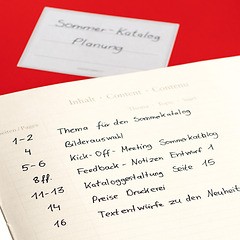 Sommer-Katalog
Planung
Inhalt · Content · Contenu
Seiten/Pages
1-2 Thema für den Sommerkatalog
4 Bilderauswahl
5-6 Kick-Off-Meeting Sommerkatalog
8ff. Feedback-Notizen Entwurf 1
11-13 Kataloggestaltung Seite 15
14 Preise Druckerei
16 Textentwürfe zu den Neuheit